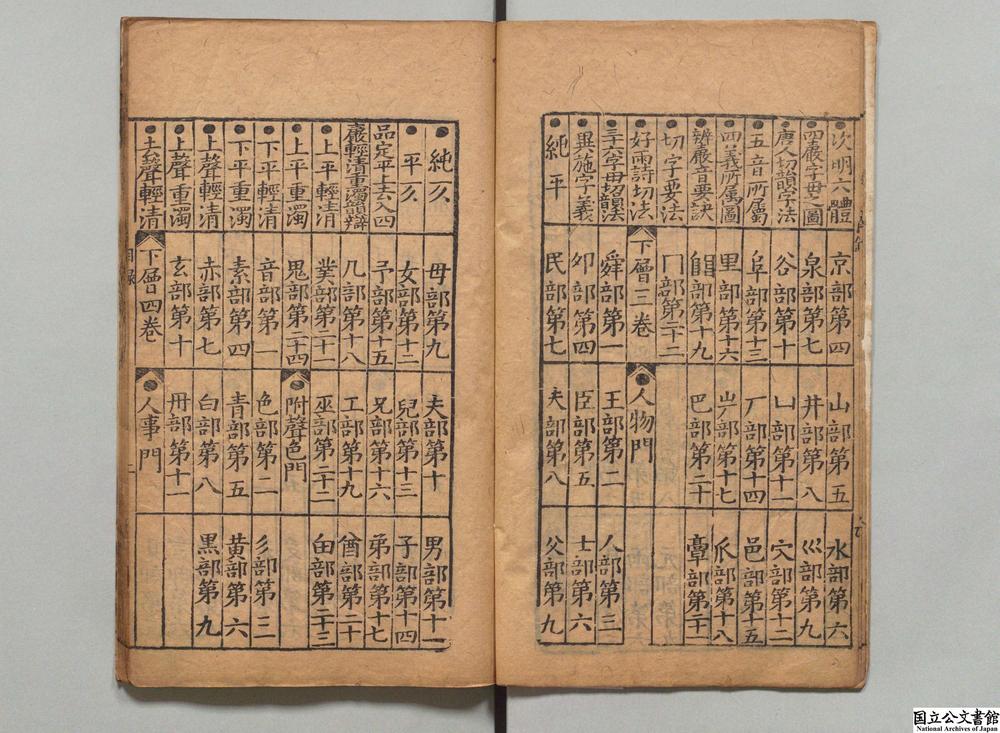 次明六體
四聲字母之圖
唐人切韻字法
五音所屬
四義所屬圖
辨嚴音要訣
切字要法
好雨詩切法
三十六字母切韻法
異施字義
純平
京部第四 山部第五 水部第六
泉部第七 井部第八 巛部第九
谷部第十 凵部第十一 穴部第十二
阜部第十三 厂部第十四 邑部第十五
里部第十六 屵部第十七 𠂢部第十八
部第十九 巴部第二十 部第二十一
冂部第二十二
下層三卷 人物門
舜部第一 王部第二 人部第三
卯部第四 臣部第五 士部第六
民部第七 夫部第八 父部第九
純仄
平仄
品定平上去入四
聲輕清重濁韻辯
上平輕清
上平重濁
下平輕清
下平重濁
上聲輕清
上聲重濁
去聲輕清
母部第九 夫部第十 男部第十一
女部第十二 兒部第十三 子部第十四
予部第十五 兄部第十六 弟部第十七
几部第十八 工部第十九 酋部第二十
業部第二十一 巫部第二十二 由部第二十三
鬼部第二十四 附聲色門
音部第一 色部第二 彡部第三
素部第四 青部第五 黃部第六
赤部第七 白部第八 黑部第九
玄部第十 冊部第十一
下層四卷 人事門
目錄
二
国立公文書館
National Archives of Japan